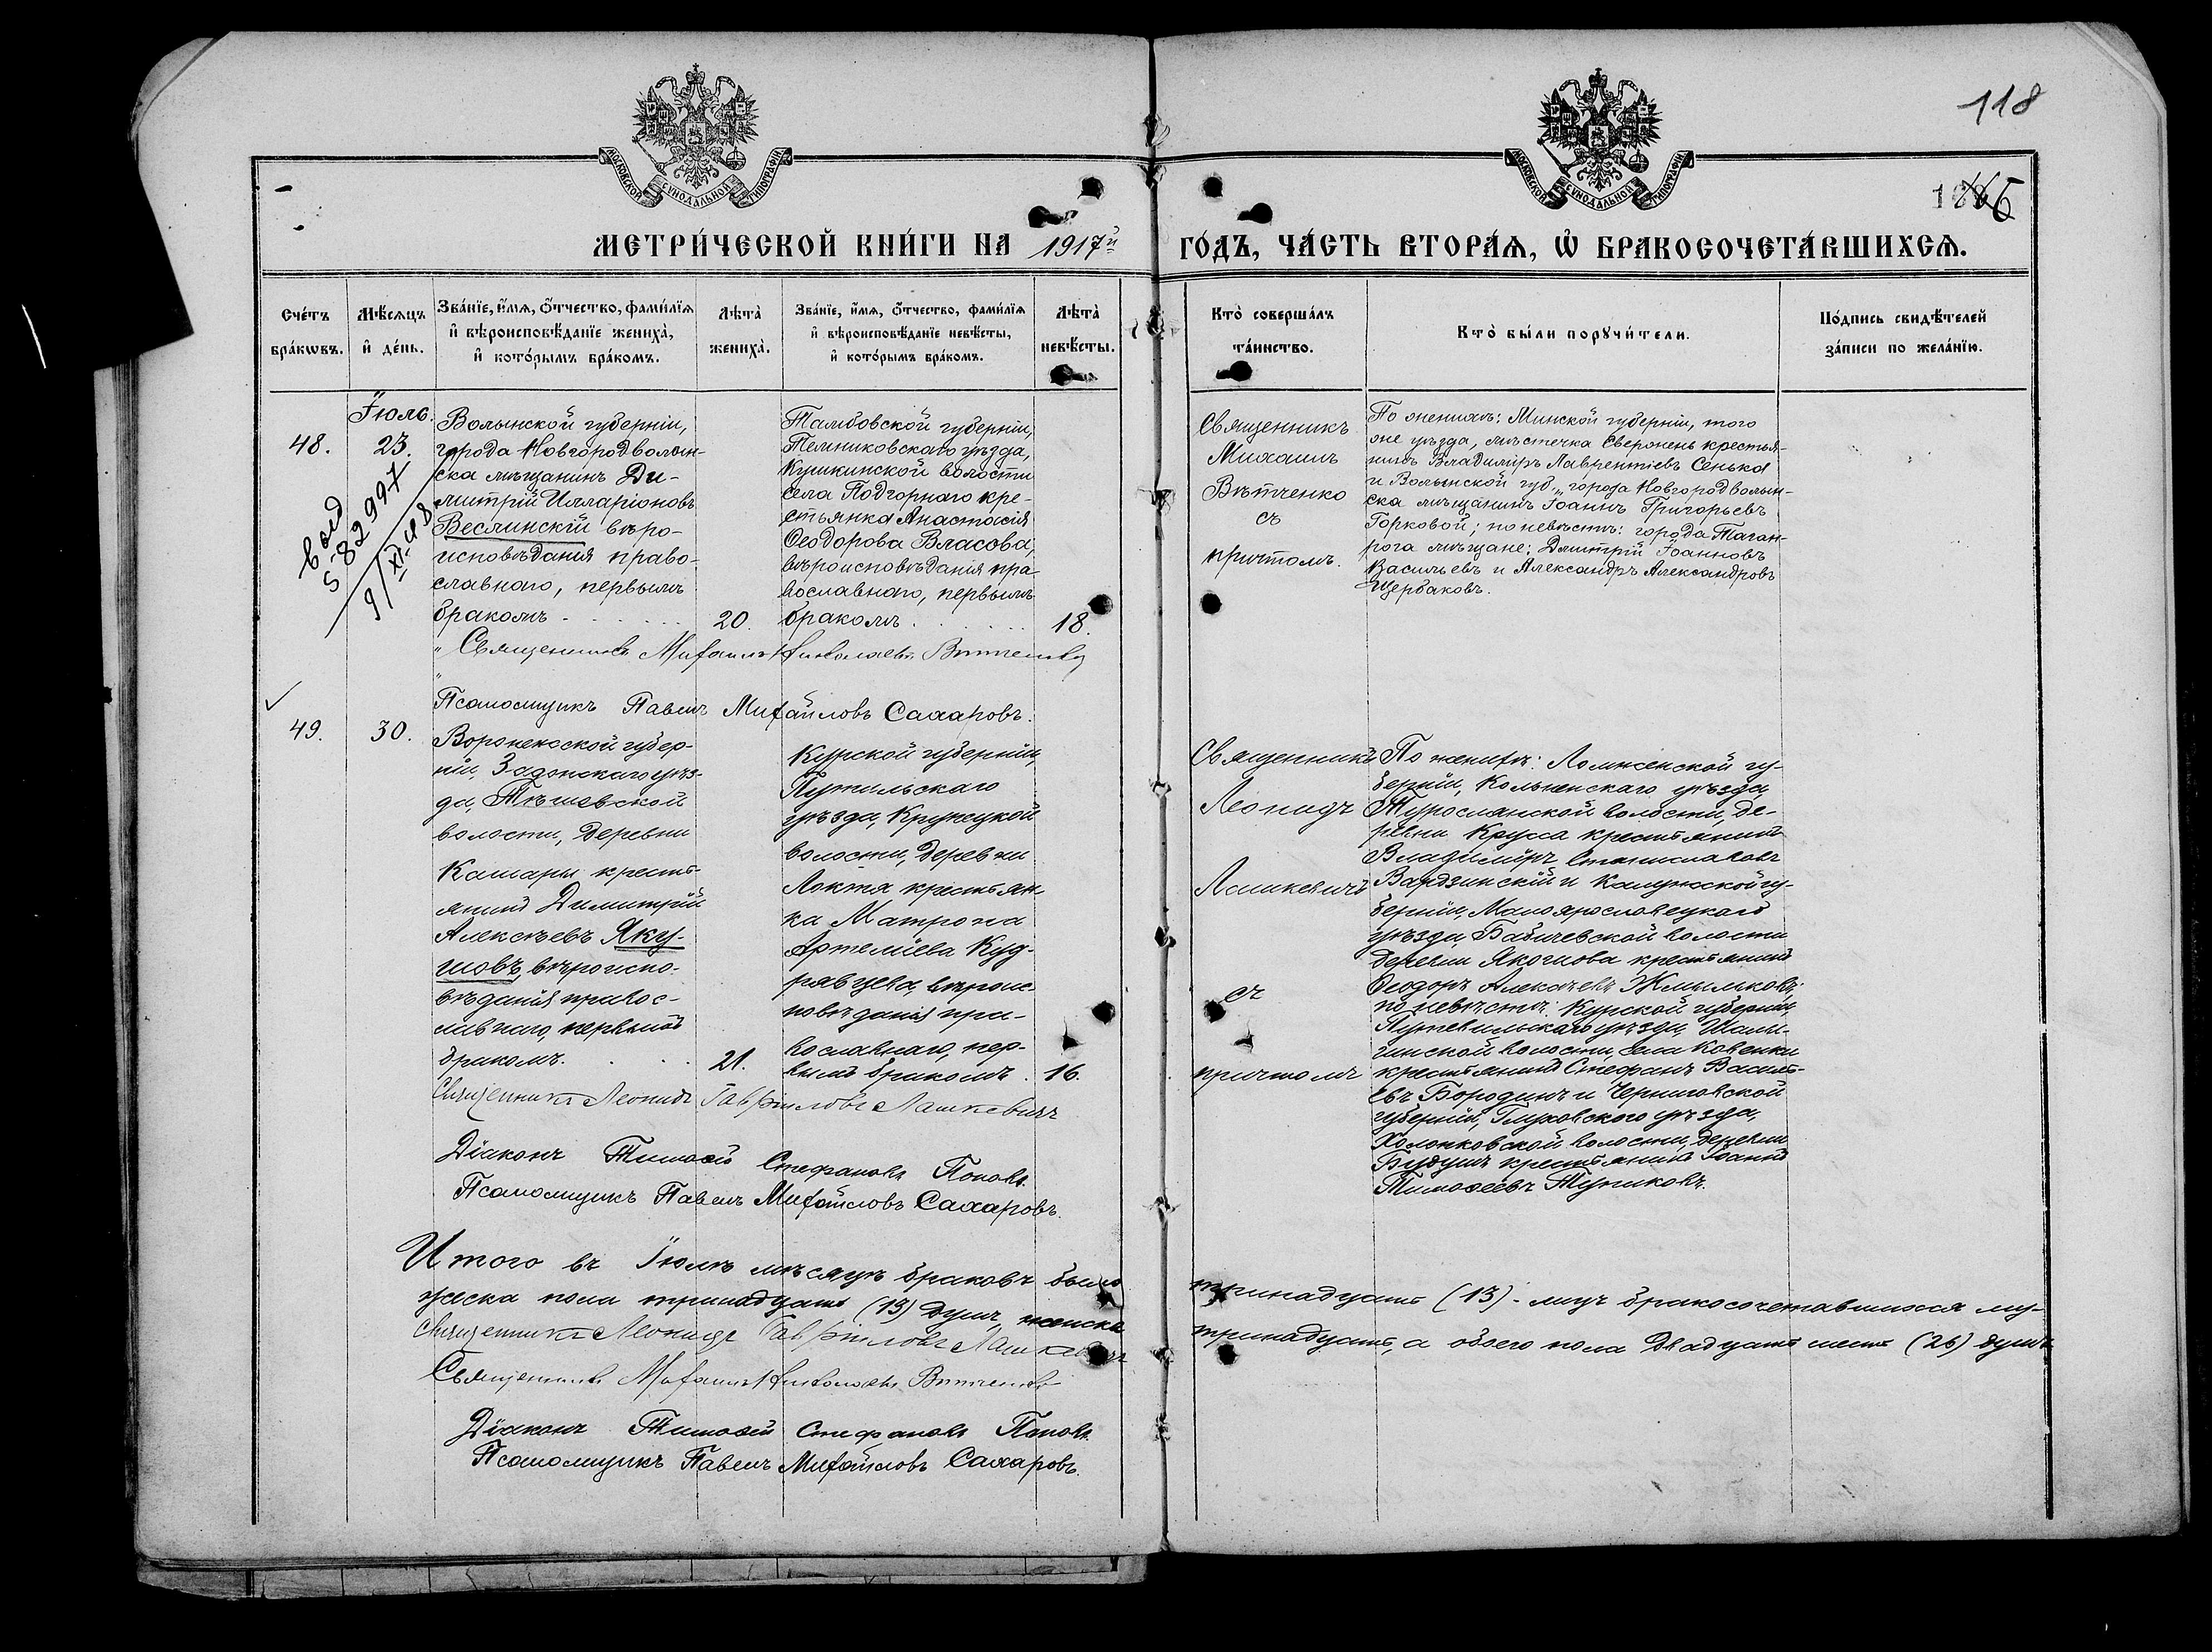 118
166
МОСКОВСКОЙ СѴНОДАЛЬНОЙ ТИПОГРАФІИ
МОСКОВСКОЙ СѴНОДАЛЬНОЙ ТИПОГРАФІИ
МЕТРИ́ЧЕСКОЙ КНИ́ГИ НА 1917й ГО́ДЪ, ЧА́СТЬ ВТОРА́Ѧ, Ѡ҆ БРАКОСОЧЕТА́ВШИХСѦ.
Сче́тъ
бра́кѡвъ.
Мѣ́сѧцъ
и҆ де́нь.
Зва́нїе, и҆́мѧ, ѻ҆́тчество, фами́лїѧ
и҆ вѣроисповѣ́данїе жениха̀,
и҆ кото́рымъ бра́комъ.
Лѣта̀
жениха̀.
Зва́нїе, и҆́мѧ, ѻ҆́тчество, фами́лїѧ
и҆ вѣроисповѣ́данїе невѣ́сты,
и҆ кото́рымъ бра́комъ.
Лѣта̀
невѣ́сты.
Кто̀ соверша́лъ
та́инство.
Кто̀ бы́ли порꙋчи́тели.
По́дпись свидѣ́телей
за́писи по жела́нїю.
48.
Іюль.
23.
582997
Волынской губерніи,
города Новгородволын-
ска мѣщанинъ Ди-
митрій Илларіоновъ
Веслинскій вѣро-
исповѣданія право-
славнаго, первымъ
бракомъ
20.
Тамбовской губерніи,
Темниковскаго уѣзда,
Кушкинской волости
села Подгорнаго кре-
стьянка Анастасія
Ѳеодорова Власова,
вѣроисповѣданія пра-
вославнаго, первымъ
бракомъ
18.
Священникъ
Михаилъ
Вѣтченко
съ
причтомъ.
По женихѣ: Минской губерніи, того
же уѣзда, мѣстечка Свержень крестья-
нинъ Владиміръ Лаврентіевъ Сенька
и Волынской губ., города Новгородволын-
ска мѣщанинъ Іоаннъ Григорьевъ
Горковой; по невѣстѣ: города Таган-
рога мѣщане: Димитрій Іоанновъ
Васильевъ и Александръ Александровъ
Щербаковъ.
Священникъ Михаилъ Николаевъ Вѣтченко
Псаломщикъ Павелъ Михайловъ Сахаровъ.
49.
30.
Воронежской губер-
ніи, Задонскаго уѣз-
да, Тѣшевской
волости, деревни
Кашары кресть-
янинъ Димитрій
Алексѣевъ Яку-
шовъ, вѣроиспо-
вѣданія правос-
лавнаго, первымъ
бракомъ.
21.
Курской губерніи,
Путивльскаго
уѣзда, Крупецкой
волости, деревни
Локтя крестьян-
ка Матрона
Артеміева Куд-
рявцева, вѣроис-
повѣданія пра-
вославнаго, пер-
вымъ бракомъ.
16.
Священникъ
Леонидъ
Лашкевичъ
съ
причтомъ
По женихѣ: Ломженской гу-
берніи, Кольненскаго уѣзда,
Туросляnской волости, де-
ревни Крусса крестьянинъ
Владиміръ Станиславовъ
Вардзинскій и Калужской гу-
берніи, Малоярославецкаго
уѣзда, Бабичевской волости
деревни крестьянинъ
Ѳеодоръ Алексѣевъ Жмыльковъ;
по невѣстѣ: Курской губерніи,
Путивльскаго уѣзда, Шалы-
гинской волости, села Ковенки
крестьянинъ Стефанъ Василь-
евъ Бородинъ и Черниговской
губерніи, Глуховскаго уѣзда,
Холопковской волости, деревни
крестьянинъ Іоаннъ
Тимоѳеевъ Тупиковъ.
Священникъ Леонидъ Гавріиловъ Лашкевичъ
Діаконъ Тимоѳей Стефановъ Поповъ.
Псаломщикъ Павелъ Михайловъ Сахаровъ.
Итого въ Іюлѣ мѣсяцѣ браковъ было тринадцать (13) - лицъ бракосочетавшихся му-
жеска пола тринадцать (13) душъ, женска тринадцать, а обоего пола двадцать шесть (26) душъ.
Священникъ Леонидъ Гавріиловъ Лашкевичъ
Священникъ Михаилъ Николаевъ Вѣтченко
Діаконъ Тимоѳей Стефановъ Поповъ.
Псаломщикъ Павелъ Михайловъ Сахаровъ.